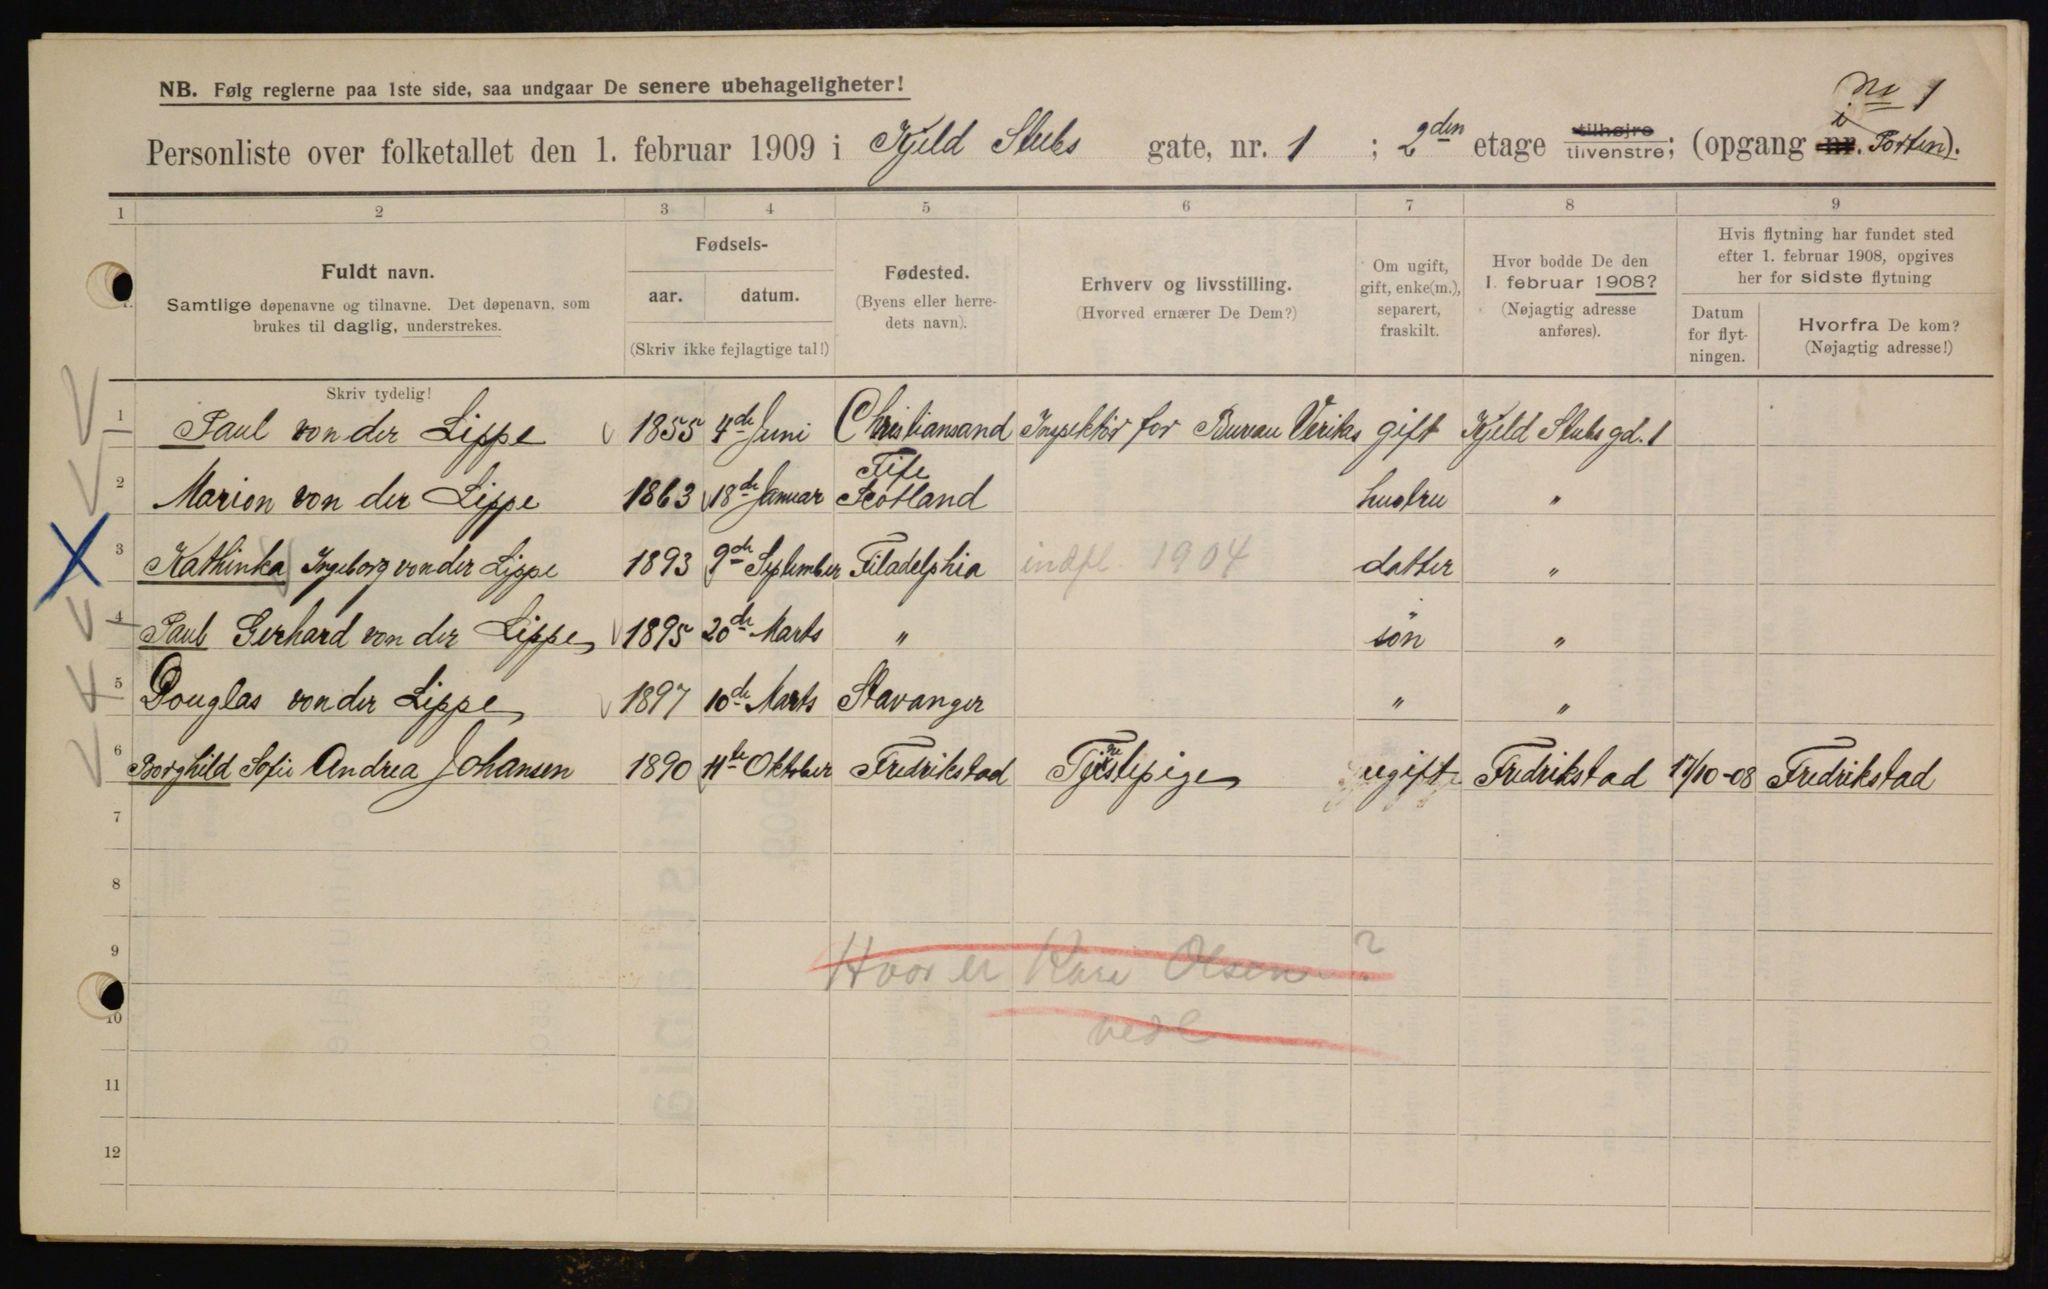 No 1
NB. Følg reglerne paa 1ste side, saa undgaar De senere ubehageligheter!
Personliste over folketallet den 1. februar 1909 i Kjeld Stubs gate, nr. 1 ; 2den etage tilhøjre tilvenstre; (opgang nr. i Porten).
1 2 3 4 5 6 7 8 9
Fuldt navn.
Samtlige døpenavne og tilnavne. Det døpenavn, som
brukes til daglig, understrekes.
Fødsels-
aar. datum.
(Skriv ikke fejlagtige tal!)
Fødested.
(Byens eller herre-
dets navn).
Erhverv og livsstilling.
(Hvorved ernærer De Dem?)
Om ugift,
gift, enke(m.),
separert,
fraskilt.
Hvor bodde De den
1. februar 1908?
(Nøjagtig adresse
anføres).
Hvis flytning har fundet sted
efter 1. februar 1908, opgives
her for sidste flytning
Datum
for flyt-
ningen.
Hvorfra De kom?
(Nøjagtig adresse!)
Skriv tydelig!
1 Paul von der Lippe 1855 4de Juni Christiansand Inspektör for Bureau Veritas gift Kjeld Stubs gd. 1
2 Marion von der Lippe 1863 18de Januar Fife Scotland hustru "
3 Kathinka Ingeborg von der Lippe 1893 9de September Filadelphia indfl. 1904 datter "
4 Paul Gerhard von der Lippe 1895 20de Marts " sön "
5 Douglas von der Lippe 1897 10de Marts Stavanger " "
6 Borghild Sofie Andrea Johansen 1890 11te Oktober Fredrikstad Tjenestepige ugift Fredrikstad 17/10-08 Fredrikstad
7
8
9
Hvor er Kari Olsen?
10
11
12